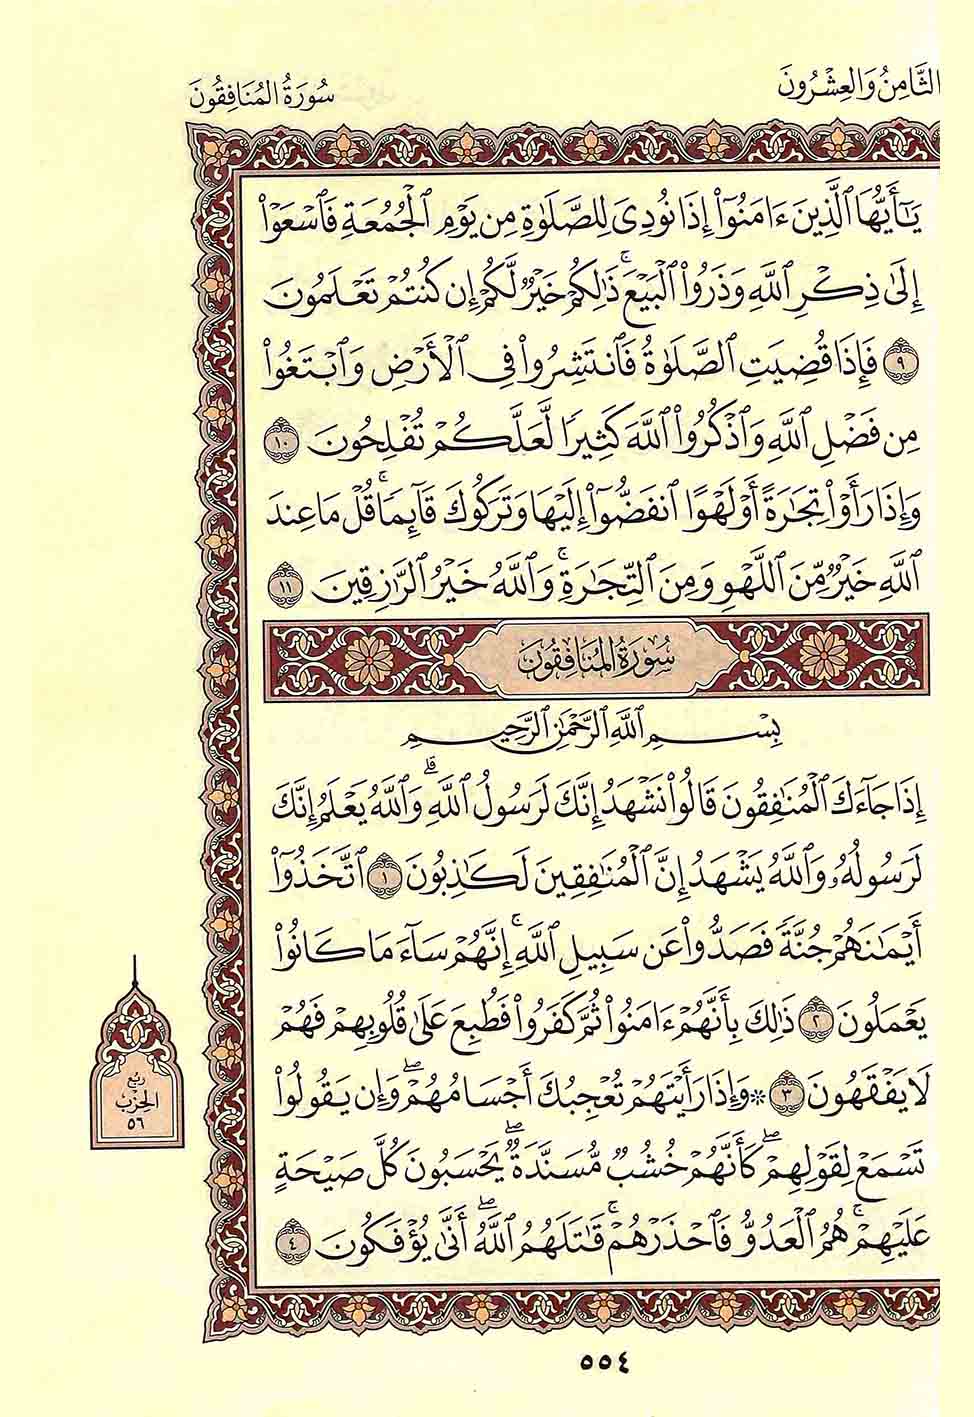 الثَّامِنُ وَالعِشْرُونَ
سُورَةُ المُنَافِقُونَ
يَٰٓأَيُّهَا ٱلَّذِينَ ءَامَنُوٓا۟ إِذَا نُودِىَ لِلصَّلَوٰةِ مِن يَوْمِ ٱلْجُمُعَةِ فَٱسْعَوْا۟
إِلَىٰ ذِكْرِ ٱللَّهِ وَذَرُوا۟ ٱلْبَيْعَ ۚ ذَٰلِكُمْ خَيْرٌ لَّكُمْ إِن كُنتُمْ تَعْلَمُونَ
٩ فَإِذَا قُضِيَتِ ٱلصَّلَوٰةُ فَٱنتَشِرُوا۟ فِى ٱلْأَرْضِ وَٱبْتَغُوا۟
مِن فَضْلِ ٱللَّهِ وَٱذْكُرُوا۟ ٱللَّهَ كَثِيرًا لَّعَلَّكُمْ تُفْلِحُونَ ١٠
وَإِذَا رَأَوْا۟ تِجَٰرَةً أَوْ لَهْوًا ٱنفَضُّوٓا۟ إِلَيْهَا وَتَرَكُوكَ قَآئِمًا ۚ قُلْ مَا عِندَ
ٱللَّهِ خَيْرٌ مِّنَ ٱللَّهْوِ وَمِنَ ٱلتِّجَٰرَةِ ۚ وَٱللَّهُ خَيْرُ ٱلرَّٰزِقِينَ ١١
سُورَةُ المُنَافِقُونَ
بِسْمِ ٱللَّهِ ٱلرَّحْمَٰنِ ٱلرَّحِيمِ
إِذَا جَآءَكَ ٱلْمُنَٰفِقُونَ قَالُوا۟ نَشْهَدُ إِنَّكَ لَرَسُولُ ٱللَّهِ ۗ وَٱللَّهُ يَعْلَمُ إِنَّكَ
لَرَسُولُهُۥ وَٱللَّهُ يَشْهَدُ إِنَّ ٱلْمُنَٰفِقِينَ لَكَٰذِبُونَ ١ ٱتَّخَذُوٓا۟
أَيْمَٰنَهُمْ جُنَّةً فَصَدُّوا۟ عَن سَبِيلِ ٱللَّهِ ۚ إِنَّهُمْ سَآءَ مَا كَانُوا۟
يَعْمَلُونَ ٢ ذَٰلِكَ بِأَنَّهُمْ ءَامَنُوا۟ ثُمَّ كَفَرُوا۟ فَطُبِعَ عَلَىٰ قُلُوبِهِمْ فَهُمْ
لَا يَفْقَهُونَ ٣ ۞ وَإِذَا رَأَيْتَهُمْ تُعْجِبُكَ أَجْسَامُهُمْ ۖ وَإِن يَقُولُوا۟
تَسْمَعْ لِقَوْلِهِمْ ۖ كَأَنَّهُمْ خُشُبٌ مُّسَنَّدَةٌ ۖ يَحْسَبُونَ كُلَّ صَيْحَةٍ
عَلَيْهِمْ ۚ هُمُ ٱلْعَدُوُّ فَٱحْذَرْهُمْ ۚ قَٰتَلَهُمُ ٱللَّهُ ۖ أَنَّىٰ يُؤْفَكُونَ ٤
رُبُع
الحِزْب
٥٦
٥٥٤